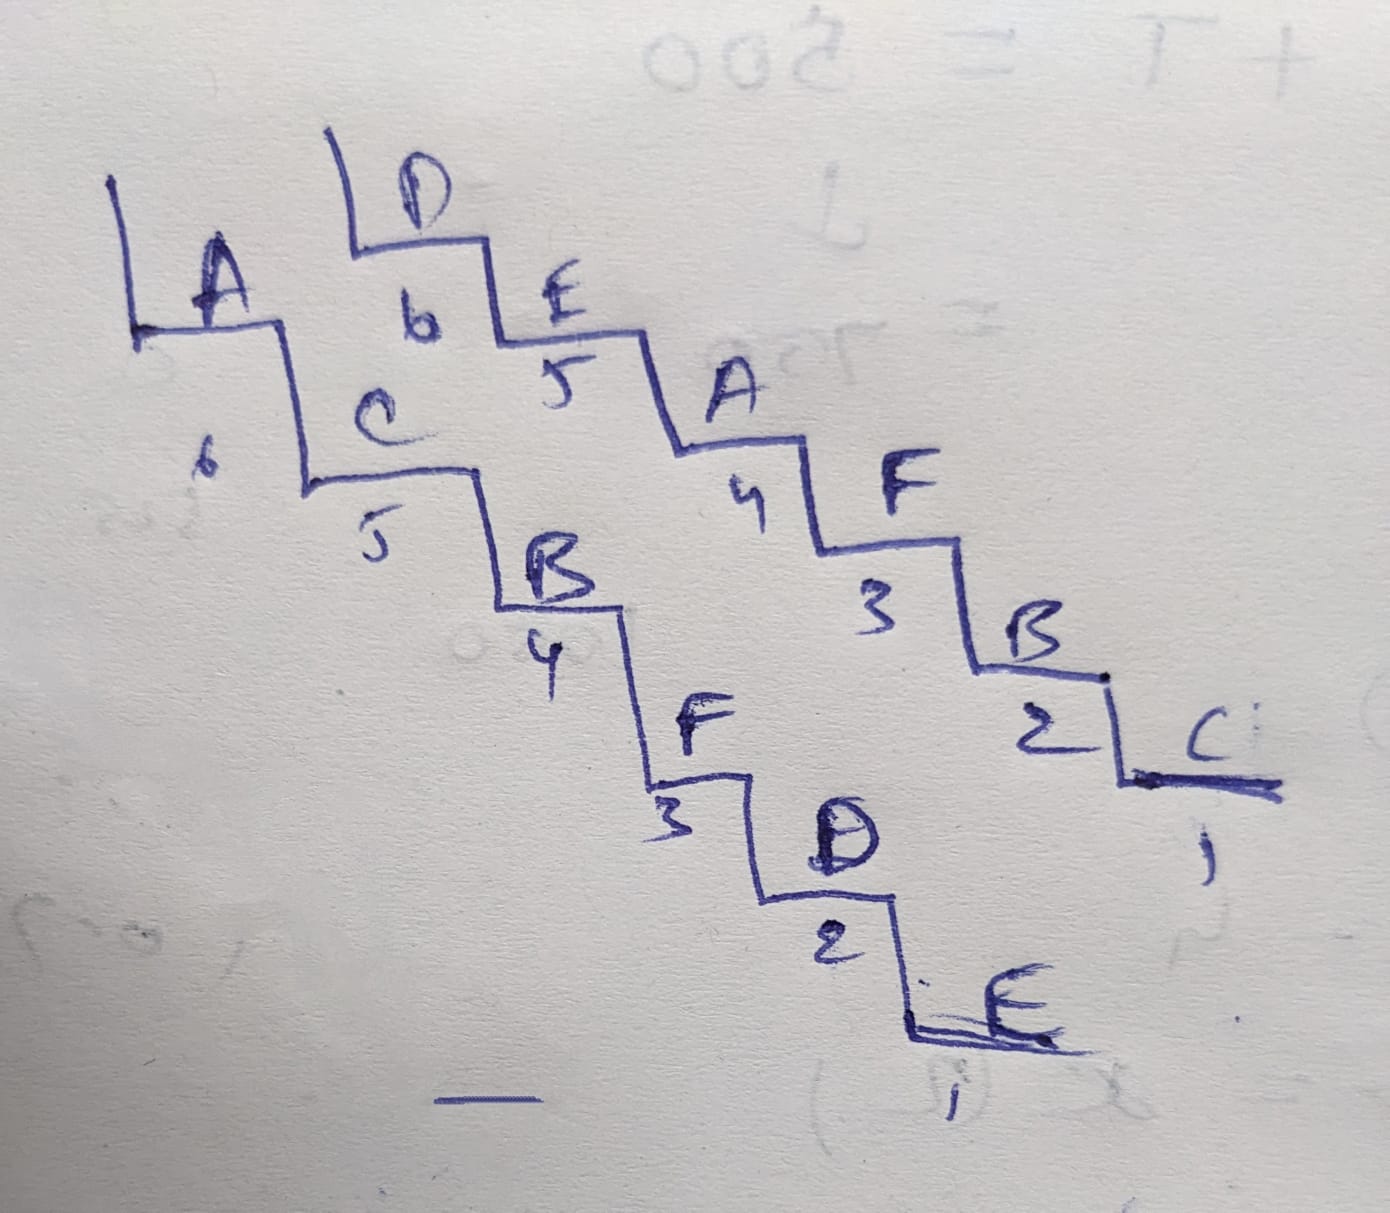 D
6
E
5
A
4
F
3
B
2
C
1
A
6
C
5
B
4
F
3
D
2
E
1